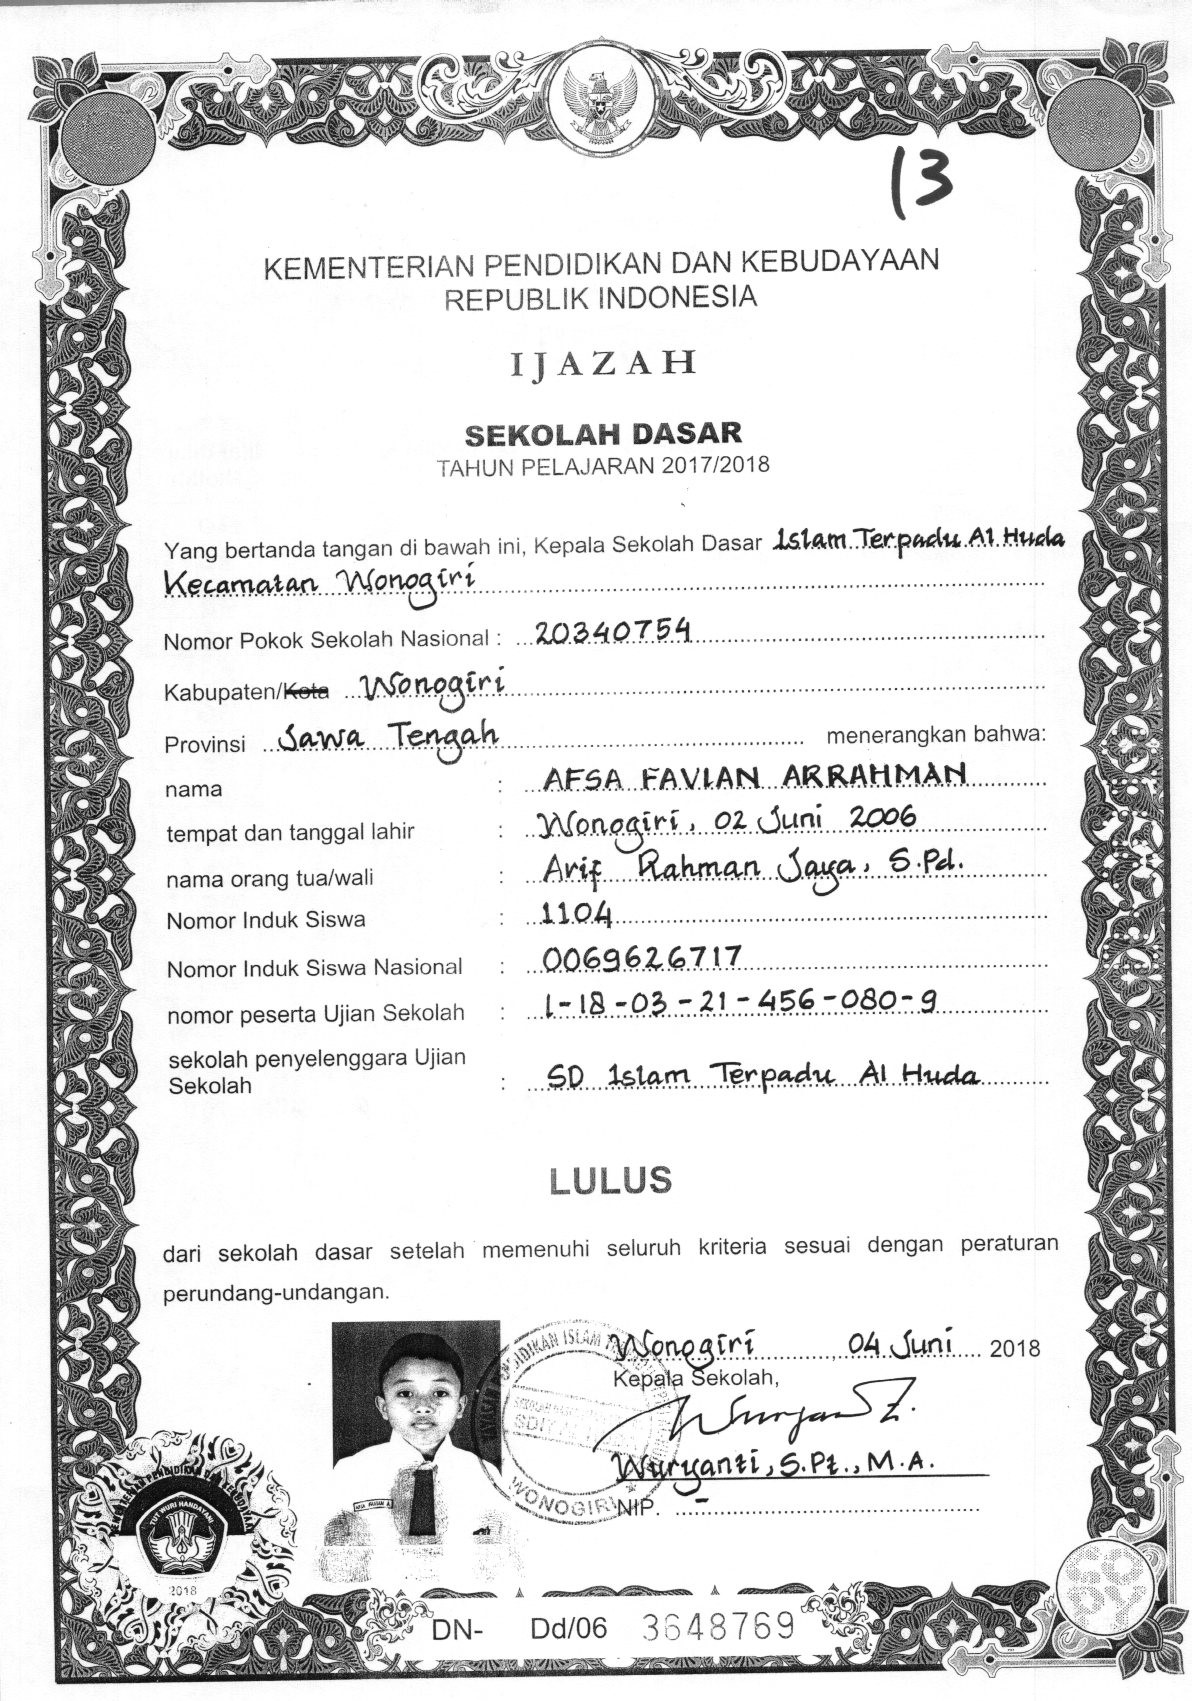 13
KEMENTERIAN PENDIDIKAN DAN KEBUDAYAAN
REPUBLIK INDONESIA
IJAZAH
SEKOLAH DASAR
TAHUN PELAJARAN 2017/2018
Yang bertanda tangan di bawah ini, Kepala Sekolah Dasar Islam Terpadu Al Huda
Kecamatan Wonogiri
Nomor Pokok Sekolah Nasional : 20340754
Kabupaten/Kota Wonogiri
Provinsi Jawa Tengah menerangkan bahwa:
nama : AFSA FAVIAN ARRAHMAN
tempat dan tanggal lahir : Wonogiri, 02 Juni 2006
nama orang tua/wali : Arif Rahman Jaya, S.Pd.
Nomor Induk Siswa : 1104
Nomor Induk Siswa Nasional : 0069626717
nomor peserta Ujian Sekolah : 1-18-03-21-456-080-9
sekolah penyelenggara Ujian
Sekolah : SD Islam Terpadu Al Huda
LULUS
dari sekolah dasar setelah memenuhi seluruh kriteria sesuai dengan peraturan
perundang-undangan.
Wonogiri, 04 Juni 2018
Kepala Sekolah,
Wuryanti, S.Pt., M.A.
NIP. -
PENDIDIKAN ISLAM
SDIT
WONOGIRI
KEMENTERIAN PENDIDIKAN DAN KEBUDAYAAN
TUT WURI HANDAYANI
2018
DN- Dd/06 3648769